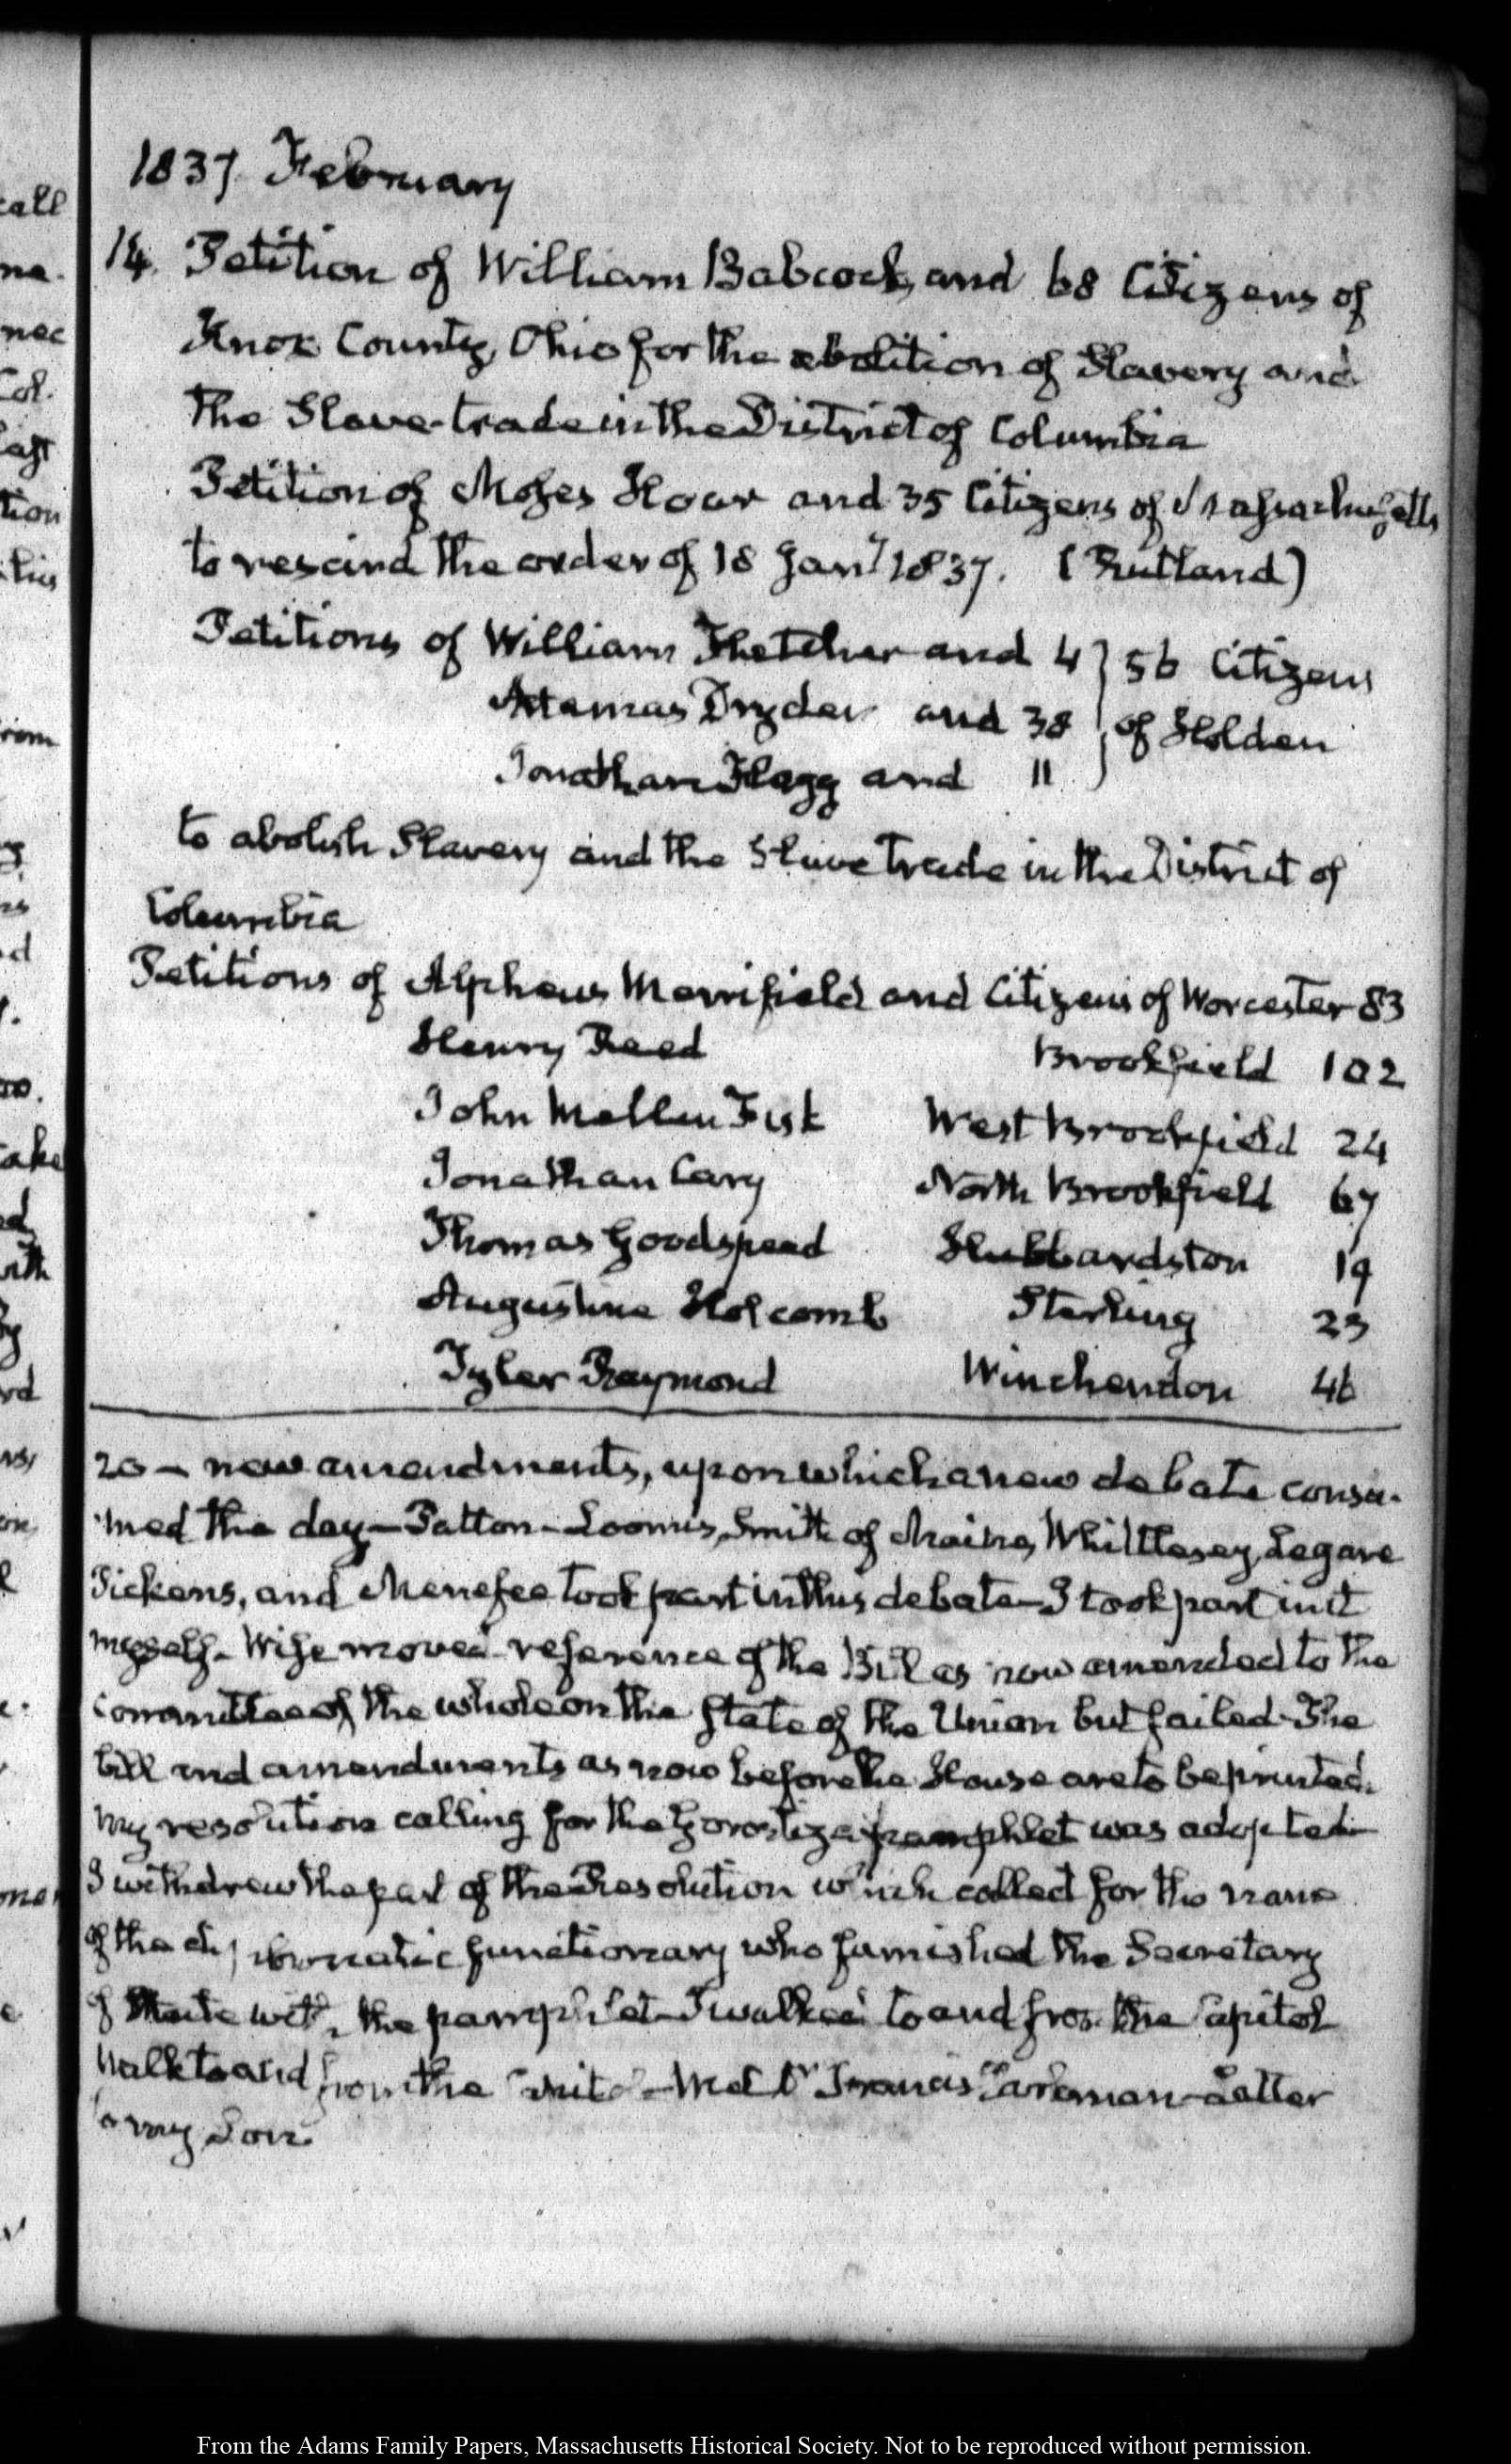 1837. February
14. Petition of William Babcock, and 68 Citizens of
Knox County, Ohio for the abolition of Slavery and
the Slave-trade in the District of Columbia
Petition of Moses How and 35 Citizens of Massachusetts
to rescind the order of 18 Jany 1837. (Rutland)
Petitions of William Fletcher and 4 } 56 Citizens
Artemas Dryden and 38 of Holden
Jonathan Flagg and 11
to abolish Slavery and the Slave trade in the District of
Columbia
Petitions of Alpheus Merrifield and Citizens of Worcester 83
Henry Reed Brookfield 102
John Mellen Fisk West Brookfield 24
Jonathan Cary North Brookfield 67
Thomas Goodspeed Hubbardston 19
Augustine Holcomb Sterling 23
Tyler Raymond Winchendon 46
20 — new amendments, upon which a new debate consu-
med the day — Patton — Loomis, Smith of Maine, Whittlesey, Legare
Pickens, and Menefee took part in this debate — I took part in it
myself — Wise moved reference of the Bill as now amended to the
Committee of the whole on the State of the Union but failed — The
bill and amendments as now before the House are to be printed.
My resolution calling for the Gorostiza pamphlet was adopted —
I withdrew the part of the Resolution which called for the name
of the diplomatic functionary who furnished the Secretary
of State with the pamphlet — I walked to and from the Capitol
Walk to and from the Capitol — Met Dr Francis Parkman — Letter
to my Son.
call
me.
nec
Col.
tion
rom
d
ake
with
rd
From the Adams Family Papers, Massachusetts Historical Society. Not to be reproduced without permission.